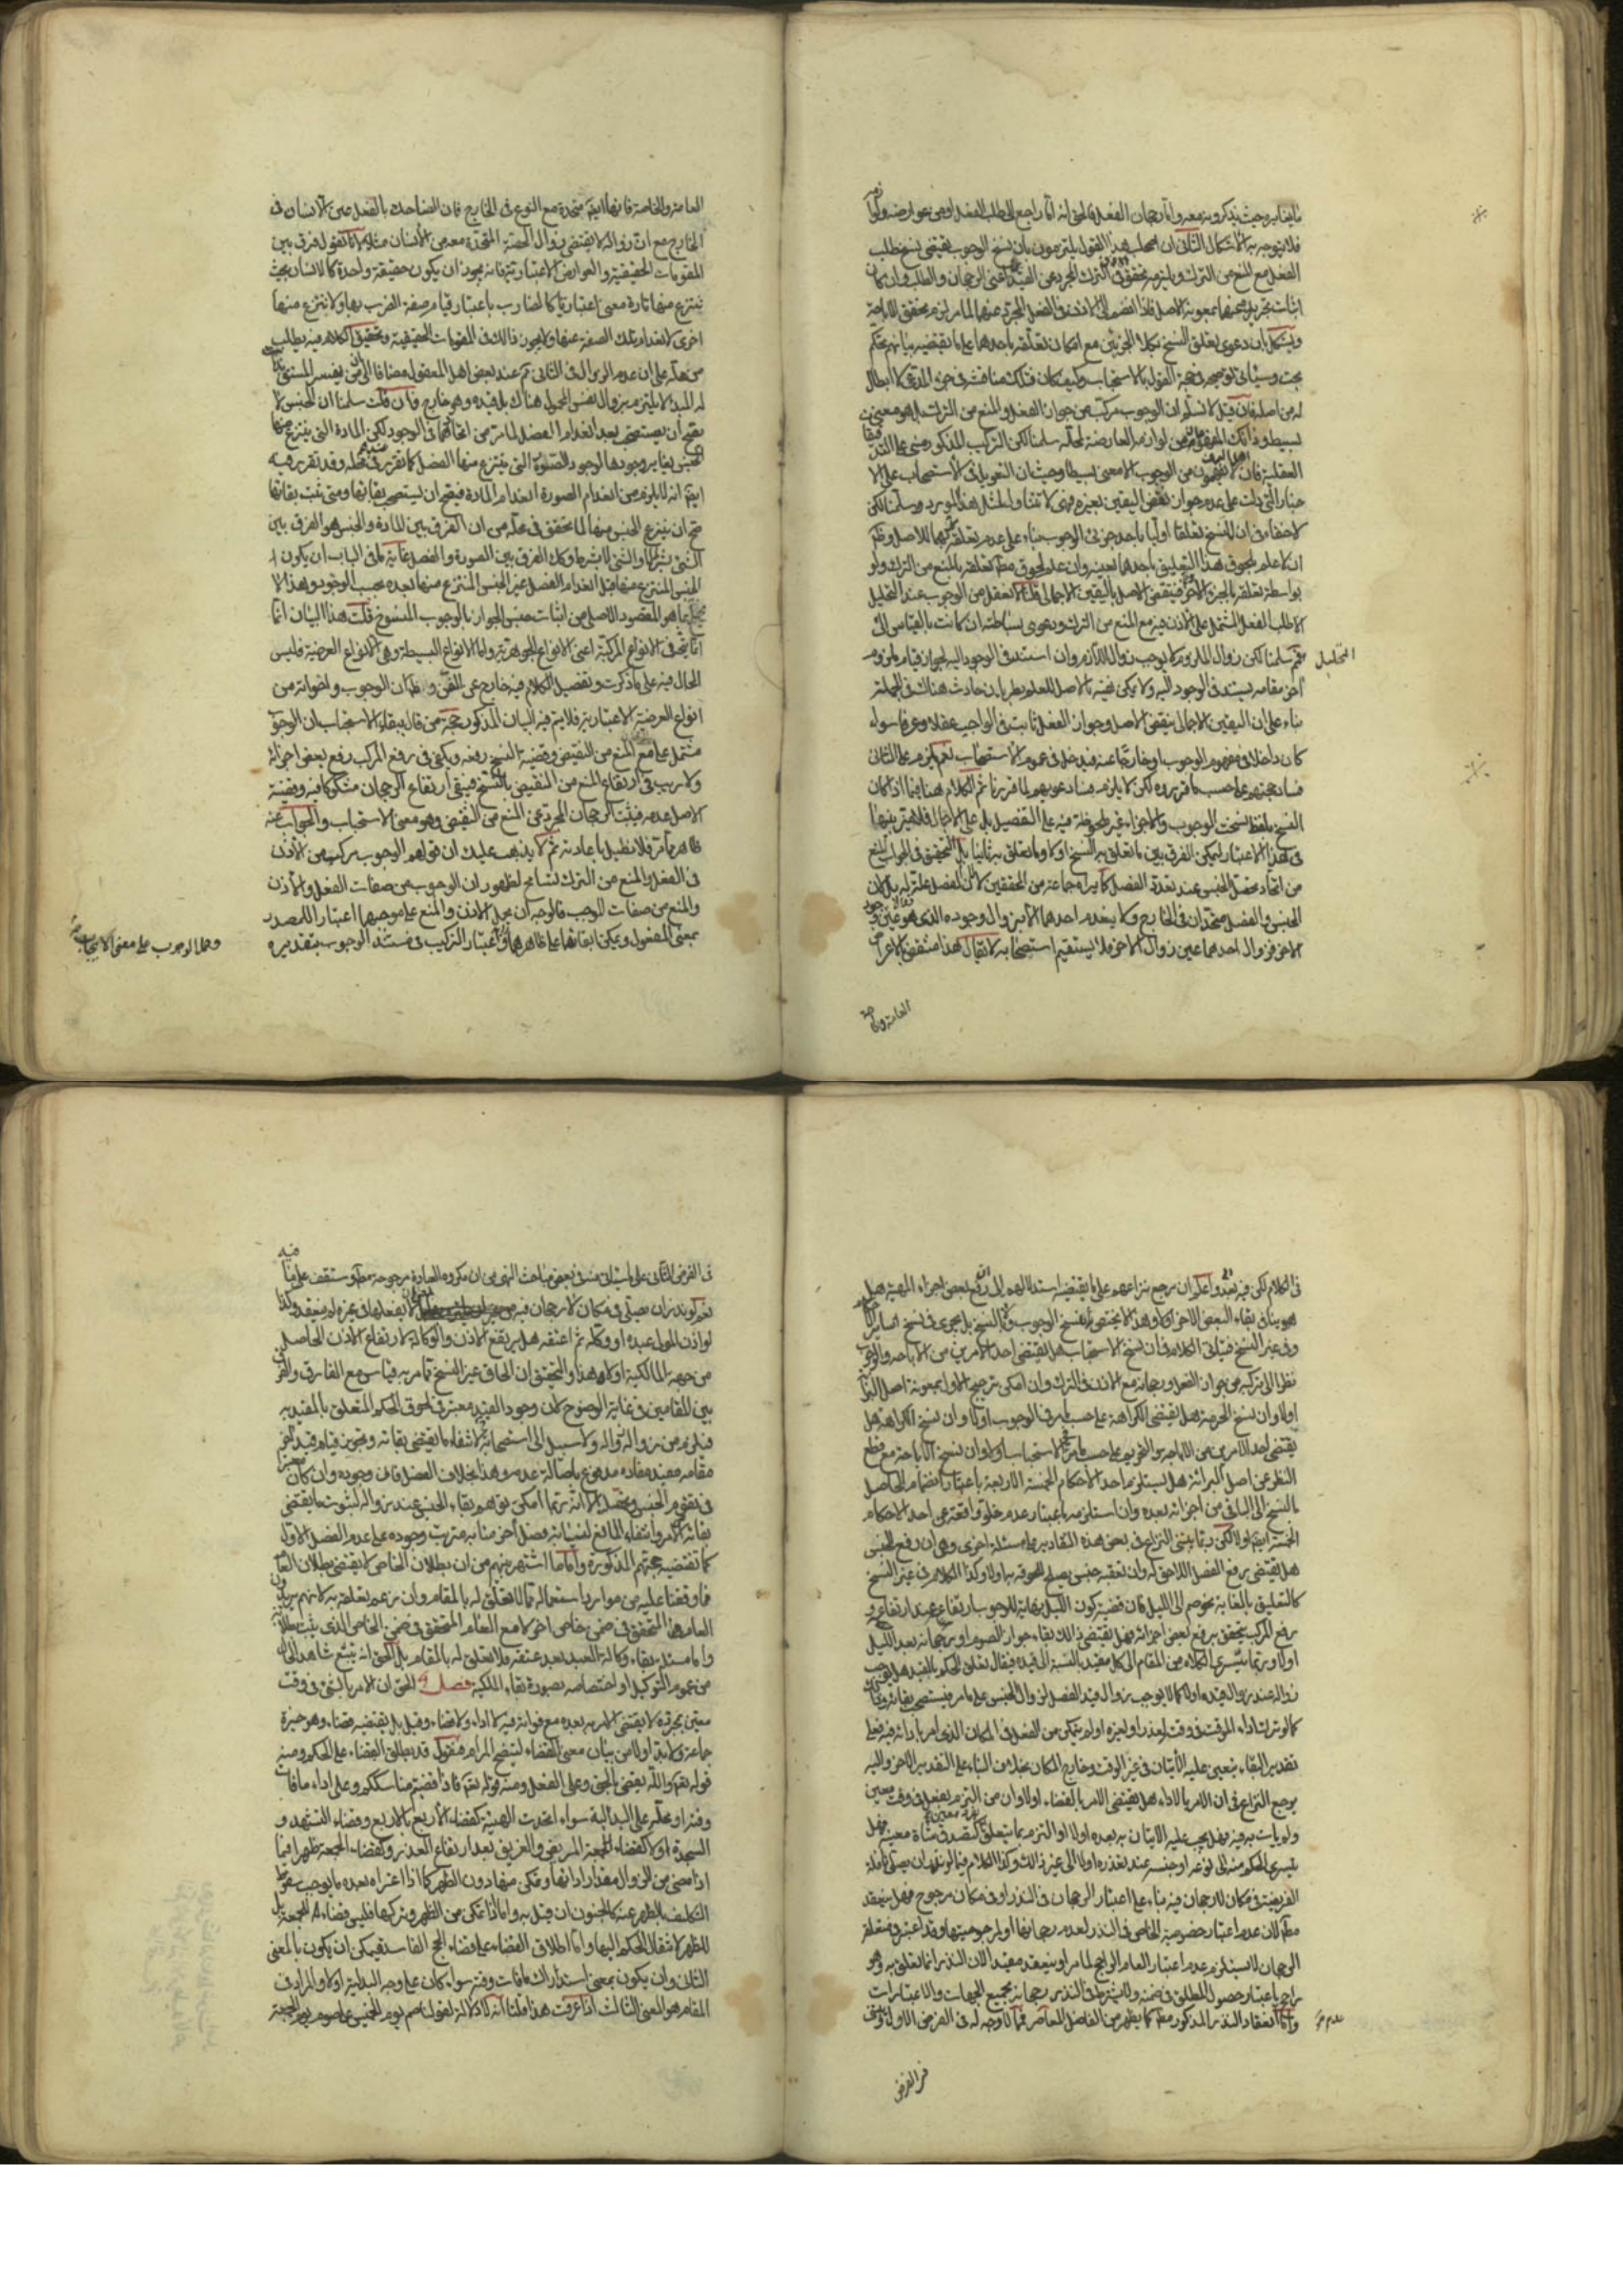 فلا يتوجه به الاشكال الثاني ان اصحاب هذا القول يلتزمون بان نسخ الوجوب يقتضي نسخ طلب
الفعل مع المنع من الترك
ويشكل بان دعوى تعلق النسخ بكلا الجزئين مع امكان تعلقه باحدهما على ما يقتضيه بيانهم تحكم
بحت وسيأتي توجيهه في حجة القول بالاستحباب وكيف كان فتلك مناقشة في حق المدعى لا ابطال
له من اصله فان قيل لا نسلم ان الوجوب مركب من جواز الفعل والمنع من الترك بل هو معنى
بسيط
العقلية فان لا من الوجوب الا معنى بسيطا وحيث ان التعويل في الاستصحاب على الا
خبار التي دلت على عدم جواز نقض اليقين بغيره فهي لا تتناول لمثل هذا المورد سلمنا لكن
لا خفاء في ان للنسخ تعلقا اوليا باحد جزئي الوجوب بناء على عدم تعلقه بكليهما للاصل
بواسطة تعلقه بالجزء الاخر فينتقض الاصل باليقين الاجمالي قلنا لا نعقل من الوجوب عند التحليل
الا طلب الفعل المشتمل على الاذن فيه مع المنع من الترك ودعوى بساطته ان كانت بالقياس الى
التحليل
سلمنا لكن زوال الملزوم كما يوجب زوال اللازم وان استند في الوجود اليه لجواز قيام ملزوم
اخر مقامه يستند في الوجود اليه ولا يمكن نفيه بالاصل للعلم بطريان حادث هناك في الجملة
بناء على ان اليقين الاجمالي ينقض الاصل وجواز الفعل ثابت في الواجب عقلا وعرفا سواء
كان داخلا في مفهوم الوجوب او خارجا عنه فيدخل في عموم الاستصحاب نعم يلزم على الثاني
فساد حجتهم على حسب ما قرروه لكن لا يلزم فساد دعويهم لما قررنا ثم الكلام هنا فيما اذا كان
النسخ بلفظ نسخت الوجوب والاجزاء غير ملحوظة فيه على التفصيل بل على الاجمال فلا يتميز بينها
في هذا الاعتبار ليمكن الفرق بين ما تعلق به النسخ اولا وما تعلق به ثانيا بل التحقيق في الجواب المنع
من اتحاد محصل الجنس عند تعدد الفصل كما يراه جماعة من المحققين لا لان الفصل علة له بل لان
الجنس والفصل متحدان في الخارج ولا ينعدم احدهما الا بزوال وجوده الذي هو عين وجود
الاخر فزوال احدهما عين زوال الاخر فلا يستقيم استصحابه لا يقال هذا منتقض بالاعراض
العامة والخاصة
العامة والخاصة فانها ايضا متحدة مع النوع في الخارج فان الضاحك بالفعل عين الانسان في
الخارج مع ان زواله لا يقتضي زوال الحصة المتحدة معه من الانسان مثلا لانا نقول فرق بين
المقومات الحقيقية والعوارض الاعتبارية فانه يجوز ان يكون حقيقة واحدة كالانسان بحيث
ينتزع منها تارة معنى اعتباريا كالضارب باعتبار قيام صفة الضرب بها ولا ينتزع منها
اخرى لانعدام تلك الصفة عنها ولا يجوز ذلك في المقومات الحقيقية وتحقيق الكلام فيه يطلب
من محله على ان عدم الزوال في الثاني تم عند بعض اهل المعقول
له المبدء لا يلتزم بزوال نفس المحمول هناك بل قيده وهو خارج فان قلت سلمنا ان الجنس لا
يصح ان يستصحب بعد انعدام الفصل لما مر من اتحادهما في الوجود لكن المادة التي ينتزع منها
الجنس يغاير وجودها لوجود الصورة التي ينتزع منها الفصل كما تقرر في محله وقد تقرر فيه
ايضا انه لا يلزم من انعدام الصورة انعدام المادة فيصح ان يستصحب بقائها ومتى ثبت بقائها
صح ان ينتزع الجنس منها لما تحقق في محله من ان الفرق بين المادة والجنس هو الفرق بين
الشيء بشرط لا والشيء لا بشرط وكذا الفرق بين الصورة والفصل غاية ما في الباب ان يكون
الجنس المنتزع منها قبل انعدام الفصل غير الجنس المنتزع منها بعده بحسب الوجود وهذا لا
يخل بما هو المقصود الاصلي من اثبات جنس الجواز بالوجوب المنسوخ قلت هذا البيان انما
يتجه في الانواع المركبة اعني الانواع الجوهرية واما الانواع البسيطة وهي الانواع العرضية فليس
الحال فيه على ما ذكرت وتفصيل الكلام فيه خارج عن الفن وظ ان الوجوب واخواته من
انواع العرضية الاعتبارية فلا يتم فيه البيان المذكور حجة من قال ببقاء الاستحباب ان الوجوب
مشتمل على المنع من النقيض وقضية النسخ رفعه ويكفي في رفع المركب رفع بعض اجزائه
ولا ريب في ارتفاع المنع من النقيض بالنسخ فيبقى ارتفاع الرجحان مشكوكا فيه وقضية
الاصل عدمه فيثبت الرجحان المجرد عن المنع من النقيض وهو معنى الاستحباب والجواب عنه
ظاهر مما مر فلا نطيل باعادته ثم لا يذهب عليك ان قولهم الوجوب مركب من الاذن
في الفعل والمنع من الترك تسامح لظهور ان الوجوب من صفات الفعل والاذن
والمنع من صفات الموجب فالوجه ان يحمل الاذن والمنع على موجبهما اعتبارا للمصدر
بمعنى المفعول ويمكن ابقائها على ظاهرهما واعتبار التركيب في مستند الوجوب بتقديره
وحمل الوجوب على معنى الايجاب
في الكلام لكن فيه بعد واعلم ان مرجع نزاعهم على ما يقتضيه استدلالهم الى ان رفع بعض اجزاء المهية هل
هو ينافي بقاء البعض الاخر اولا وهذا لا يختص بنسخ الوجوب ولا بالنسخ بل يجري في نسخ سائر الاحكام
وفي غير النسخ فيأتي الكلام في ان نسخ الاستحباب هل يقتضي احد الامرين من الاباحة والوجوب
نظرا الى تركبه من جواز الفعل ورجحانه مع الاذن في الترك وان امكن ترجيح الاول بمعونة اصل البرائة
اولا وان نسخ الحرمة هل يقتضي الكراهة على حسب ما مر في الوجوب اولا وان نسخ الكراهة هل
يقتضي احد الامرين من الاباحة والتحريم على حسب ما مر في الاستحباب اولا وان نسخ الاباحة مع قطع
النظر عن اصل البرائة هل يستلزم احد الاحكام الخمسة الاربعة باعتبار انضمام الحاصل
بالنسخ الى الباقي من اجزائه بعده وان استلزمه باعتبار عدم خلو واقعة عن احد الاحكام
الخمسة ايضا اولا لكن ربما يبتني النزاع في بعض هذه التقادير على مسئلة اخرى وهي ان رفع الجنس
هل يقتضي رفع الفصل اللاحق له وان تعقبه جنس يصلح للحوقه به اولا وكذا الكلام في غير النسخ
كالتعليق بالغاية نحو صم الى الليل فان قضية كون الليل نهاية للوجوب ارتفاعه عند ارتفاعه و
رفع المركب يتحقق برفع بعض اجزائه فهل يقتضي ذلك بقاء جواز الصوم او رجحانه بعد الليل
اولا وربما يتسرى الكلام من المقام الى كل مقيد بالنسبة الى قيده فيقال تعلق الحكم بالمقيد هل يوجب
زواله عند زوال قيده اولا كما لا يوجب زوال قيد الفصل لزوال الجنس على ما مر فيستصحب بقائه
كما لو ترك اداء الموقت في وقته لعذر او لغيره او لم يتمكن من الفعل في المكان الذي امر بادائه فيه فعلى
تقدير البقاء يتعين عليه الاتيان في غير الوقت وخارج المكان بخلاف البناء على التقدير الاخر واليه
يرجع النزاع في ان الامر بالاداء هل يقتضي الامر بالقضاء اولا وان من التزم بفعل في وقت معين
ولم يات به فيه فهل يجب عليه الاتيان به بعده اولا او التزم بما يتعلق كالتصدق بشاة معينة فهل
يتسرى الحكم منه الى نوعه او جنسه عند تعذره اولا الى غير ذلك وكذا الكلام فيما لو نذر ان يصلي نافلة
الفريضة في مكان لا رجحان فيه بناء على اعتبار الرجحان في النذر او في مكان مرجوح فهل ينعقد
مطلقا لان عدم اعتبار خصوصية الخاص في النذر لعدم رجحانها او لمرجوحيتها وقد اعتبر في متعلقه
الرجحان لا يستلزم عدم اعتبار العام الراجح لما مر او ينعقد مقيدا لان النذر انما تعلق به وهو
راجح باعتبار حصول المطلق في ضمنه ولا يشترط في النذر رجحانه بجميع الجهات والاعتبارات
واما انعقاد النذر المذكور مطلقا كما يظهر من الفاضل المعاصر فمما لا وجه له في الفرض الاول
عدم
في الفرض
في الفرض الثاني على ما سيأتي منه في بعض مباحث النهي من ان مكروه العبادة مرجوحة مطلقا وستقف على ما فيه
لو اذن المولى عبده او وكله ثم اعتقه هل يرتفع الاذن والوكالة لارتفاع الاذن الحاصل
من جهة المالكية اولا هذا والتحقيق ان الحاق غير النسخ بما مر به قياس مع الفارق والفرق
بين المقامين في غاية الوضوح لان وجود القيد معتبر في لحوق الحكم المتعلق بالمقيد به
فيلزم من زواله زواله ولا سبيل الى استصحابه لانتفاء ما يقتضي بقائه وتجويز قيام قيد اخر
مقامه مقيد مفاده مدفوع باصالة عدمه وهذا بخلاف الفصل فان وجوده وان كان معتبرا
في تقوم الجنس وتحصله الا انه ربما امكن توهم بقاء الجنس عند زواله لثبوت ما يقتضي
بقائه من الامر وانتفاء المانع لنيابة فصل اخر منابه مترتب وجوده على عدم الفصل الاول
كما تقتضيه حجتهم المذكورة واما ما اشتهر بينهم من ان بطلان الخاص لا يقتضي بطلان العام
فما وقفنا عليه من موارد استعماله مما لا تعلق له بالمقام وان زعم تعلقه به لانهم يريدون
العام هنا المتحقق في ضمن خاص اخر لا مع العام المتحقق في ضمن الخاص الذي يثبت بطلانه
واما مسئلة بقاء وكالة العبد بعد عتقه فلا تعلق له بالمقام بل الحق انه يتبع شاهد الحال
من عموم التوكيل او اختصاصه بصورة بقاء الملكية فصل الحق ان الامر بالشيء في وقت
معين بمجرده لا يقتضي الامر به بعده مع فواته فيه لا اداء ولا قضاء وقيل بل يقتضيه قضاء وهو خيرة
جماعة ولا بد اولا من بيان معنى القضاء ليتضح المرام فنقول قد يطلق القضاء على الحكم ومنه
قوله تعالى والله يقضي بالحق وعلى الفعل ومنه قوله تعالى فاذا قضيتم مناسككم وعلى اداء ما فات
وقته او محله على البدلية سواء اتحدت الهيئة كقضاء الاربع بالاربع وقضاء التشهد و
السجدة او لا كقضاء الجمعة المريض والغريق بعد ارتفاع العذر وكقضاء الجمعة ظهرا فيما
اذا مضى من الزوال مقدار ادائها وتمكن منها دون الظهر كما اذا اعتراه بعده ما يوجب سقوط
التكليف بالظهر عنه كالجنون ان قيل به واما اذا تمكن من الظهر وتركها فليس قضاء للجمعة بل
للظهر لانتقال الحكم اليها واما اطلاق القضاء على قضاء الحج الفاسد فيمكن ان يكون بالمعنى
الثاني وان يكون بمعنى استدراك ما فات وقته سواء كان على وجه البدلية اولا والمراد في
المقام هو المعنى الثالث اذا عرفت هذا فلنا انه لا دلالة لقول صم يوم الخميس على صوم يوم الجمعة